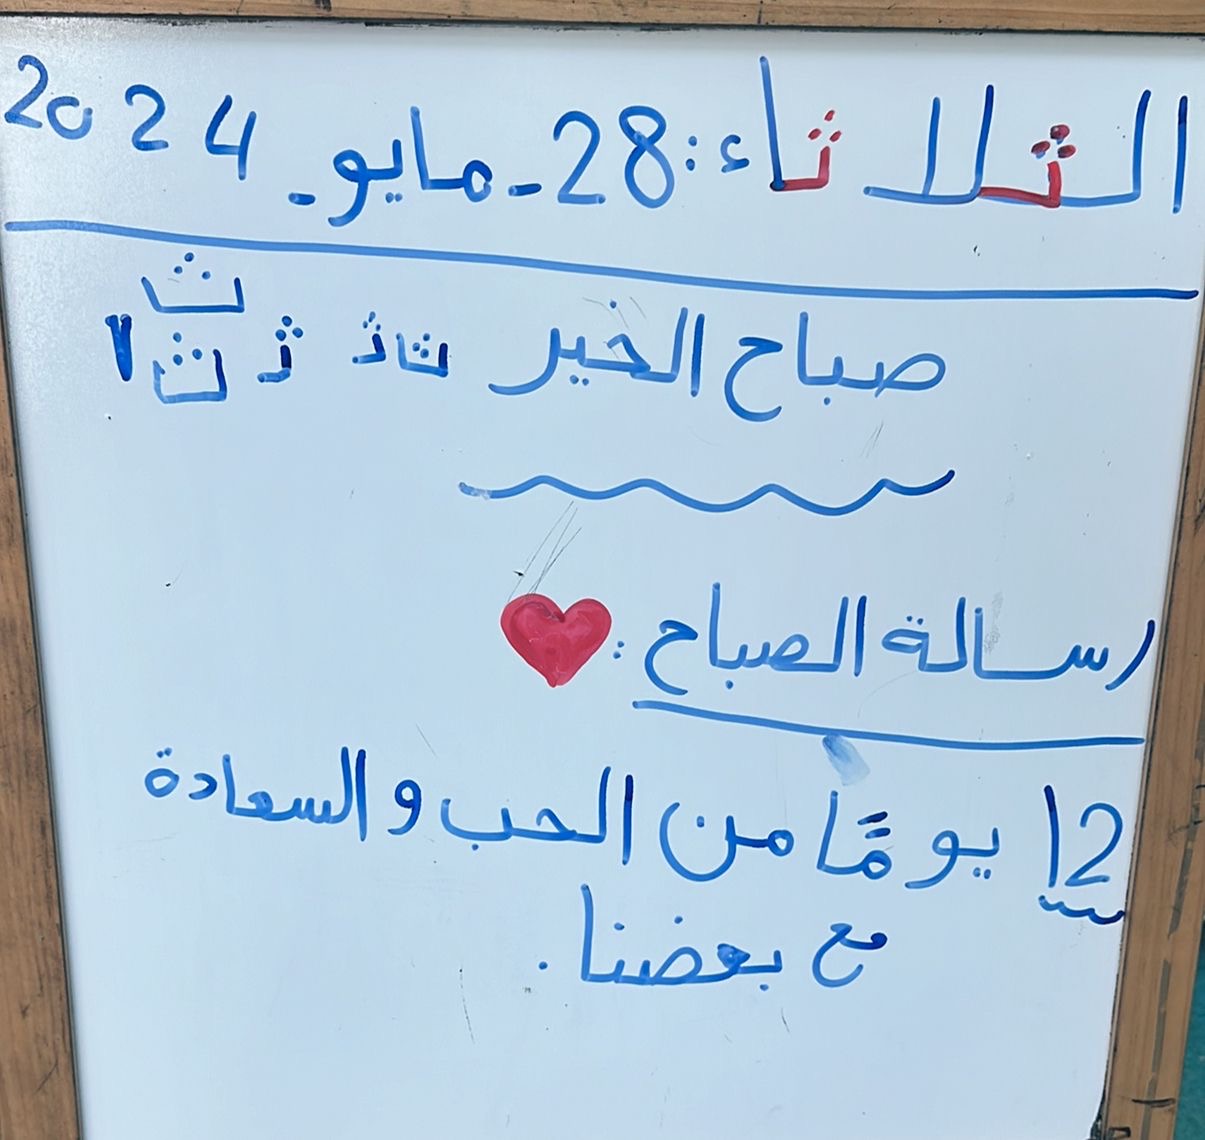 الثلاثاء: 28 - مايو - 2024
صباح الخير
رسالة الصباح:
12 يومًا من الحب و السعادة
مع بعضنا.